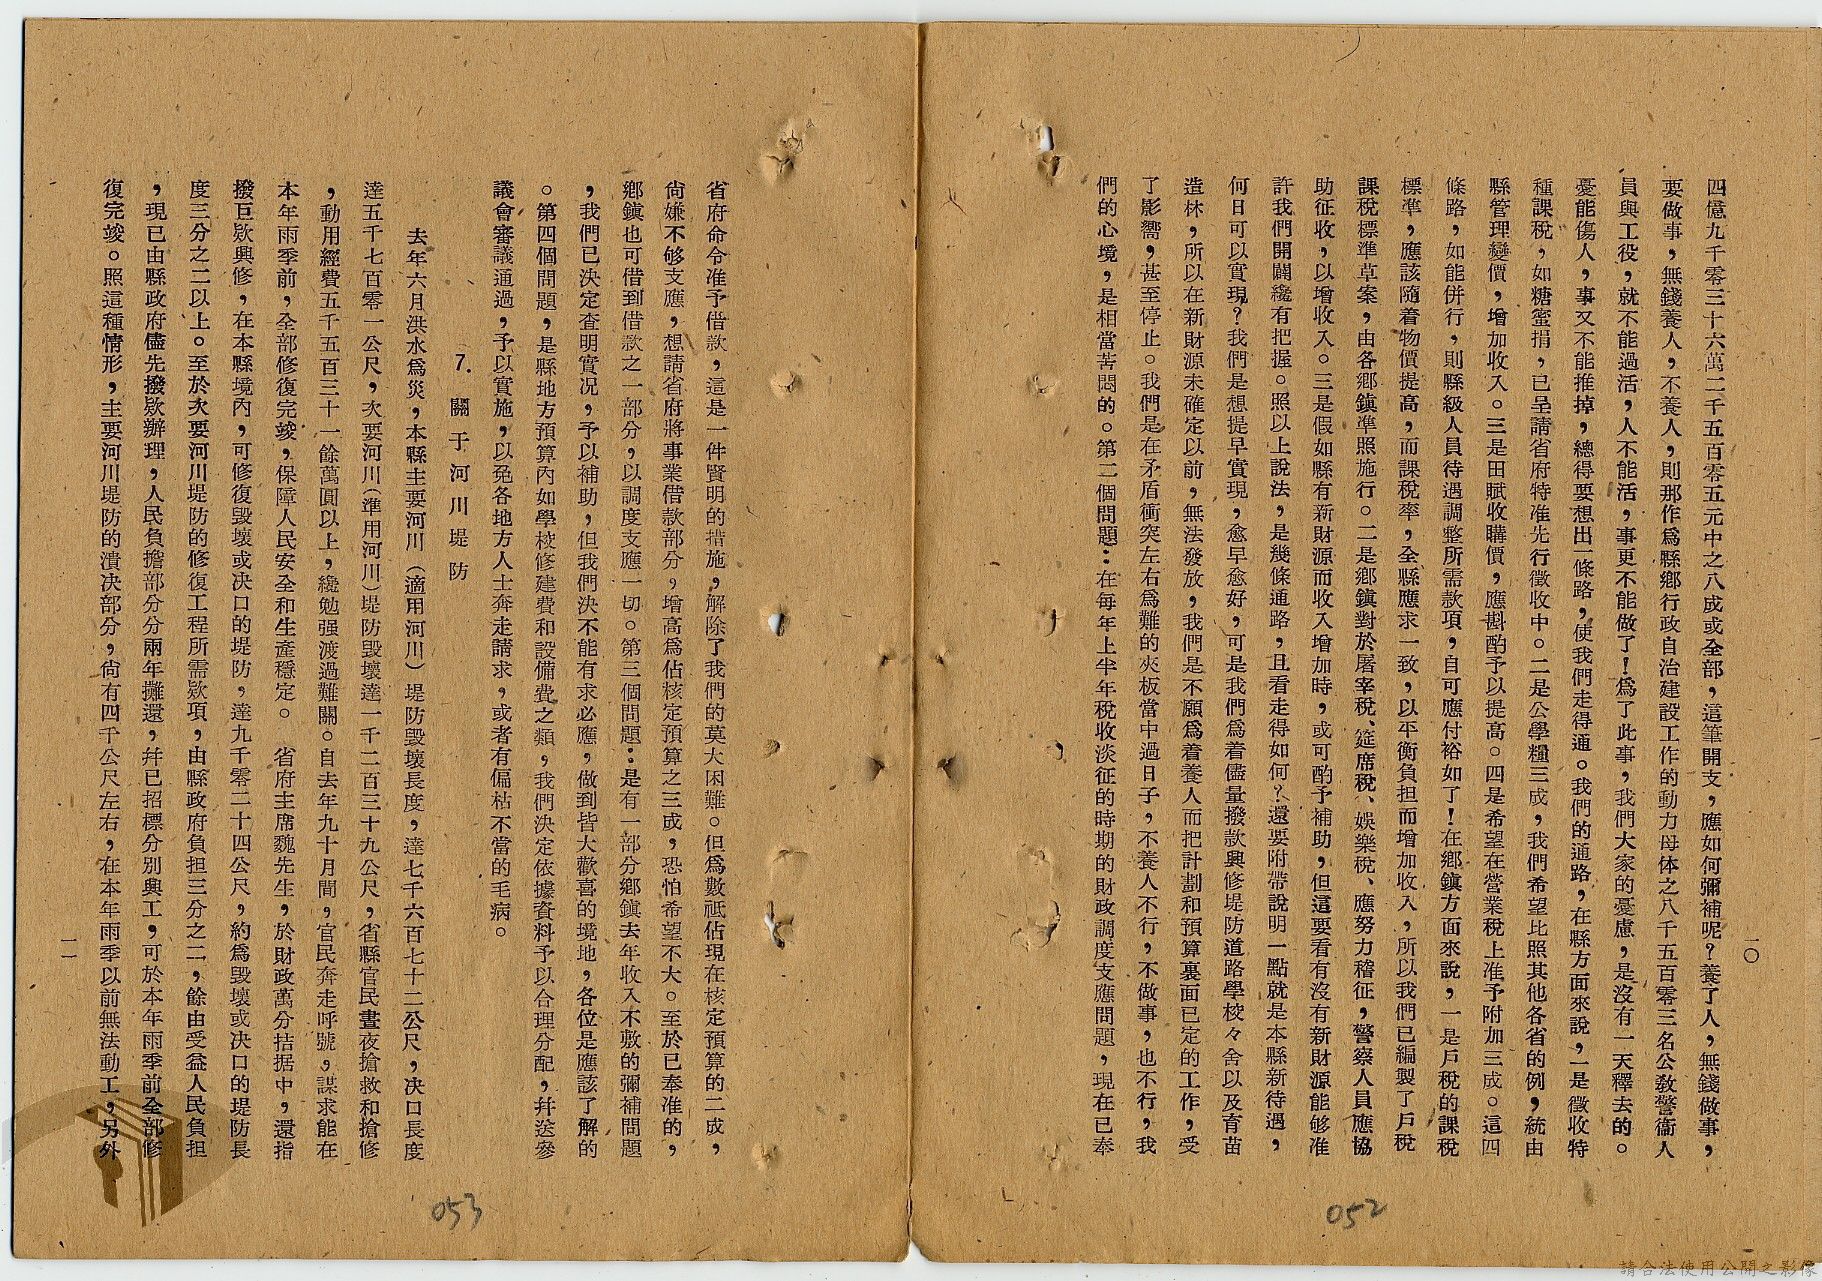 一〇
四億九千零三十六萬二千五百零五元中之八成或全部，這筆開支，應如何彌補呢？養了人，無錢做事，
要做事，無錢養人，不養人，則那作爲縣鄉行政自治建設工作的動力母体之八千五百零三名公敎警衞人
員與工役，就不能過活，人不能活，事更不能做了！爲了此事，我們大家的憂慮，是沒有一天釋去的。
憂能傷人，事又不能推掉，總得要想出一條路，使我們走得通。我們的通路，在縣方面來說，一是徵收特
種課稅，如糖蜜捐，已呈請省府特准先行徵收中。二是公學糧三成，我們希望比照其他各省的例，統由
縣管理變價，增加收入。三是田賦收購價，應斟酌予以提高。四是希望在營業稅上准予附加三成。這四
條路，如能併行，則縣級人員待遇調整所需款項，自可應付裕如了！在鄉鎮方面來說，一是戶稅的課稅
標準，應該隨着物價提高，而課稅率，全縣應求一致，以平衡負担而增加收入，所以我們已編製了戶稅
課稅標準草案，由各鄉鎮準照施行。二是鄉鎮對於屠宰稅、筵席稅、娛樂稅、應努力稽征，警察人員應協
助征收，以增收入。三是假如縣有新財源而收入增加時，或可酌予補助，但這要看有沒有新財源能够准
許我們開闢纔有把握。照以上說法，是幾條通路，且看走得如何？還要附帶說明一點就是本縣新待遇，
何日可以實現？我們是想提早實現，愈早愈好，可是我們爲着儘量撥款興修堤防道路學校々舍以及育苗
造林，所以在新財源未確定以前，無法發放，我們是不願爲着養人而把計劃和預算裏面已定的工作，受
了影響，甚至停止。我們是在矛盾衝突左右爲難的夾板當中過日子，不養人不行，不做事，也不行，我
們的心境，是相當苦悶的。第二個問題：在每年上半年稅收淡征的時期的財政調度支應問題，現在已奉
052
省府命令准予借款，這是一件賢明的措施，解除了我們的莫大困難。但爲數祇佔現在核定預算的二成，
尙嫌不够支應，想請省府將事業借款部分，增高爲佔核定預算之三成，恐怕希望不大。至於已奉准的，
鄉鎮也可借到借款之一部分，以調度支應一切。第三個問題：是有一部分鄉鎮去年收入不敷的彌補問題
，我們已決定查明實況，予以補助，但我們決不能有求必應，做到皆大歡喜的境地，各位是應該了解的
。第四個問題，是縣地方預算內如學校修建費和設備費之類，我們決定依據資料予以合理分配，幷送參
議會審議通過，予以實施，以免各地方人士奔走請求，或者有偏枯不當的毛病。
7. 關于河川堤防
去年六月洪水爲災，本縣主要河川（適用河川）堤防毀壞長度，達七千六百七十二公尺，決口長度
達五千七百零一公尺，次要河川（準用河川）堤防毀壞達一千二百三十九公尺，省縣官民晝夜搶救和搶修
，動用經費五千五百三十一餘萬圓以上，纔勉强渡過難關。自去年九十月間，官民奔走呼號，謀求能在
本年雨季前，全部修復完竣，保障人民安全和生產穩定。 省府主席魏先生，於財政萬分拮据中，還指
撥巨欵興修，在本縣境內，可修復毀壞或決口的堤防，達九千零二十四公尺，約爲毀壞或決口的堤防長
度三分之二以上。至於次要河川堤防的修復工程所需欵項，由縣政府負担三分之二，餘由受益人民負担
，現已由縣政府儘先撥欵辦理，人民負擔部分分兩年攤還，幷已招標分別興工，可於本年雨季前全部修
復完竣。照這種情形，主要河川堤防的潰決部分，尙有四千公尺左右，在本年雨季以前無法動工，另外
一一
053
請合法使用公開之影像